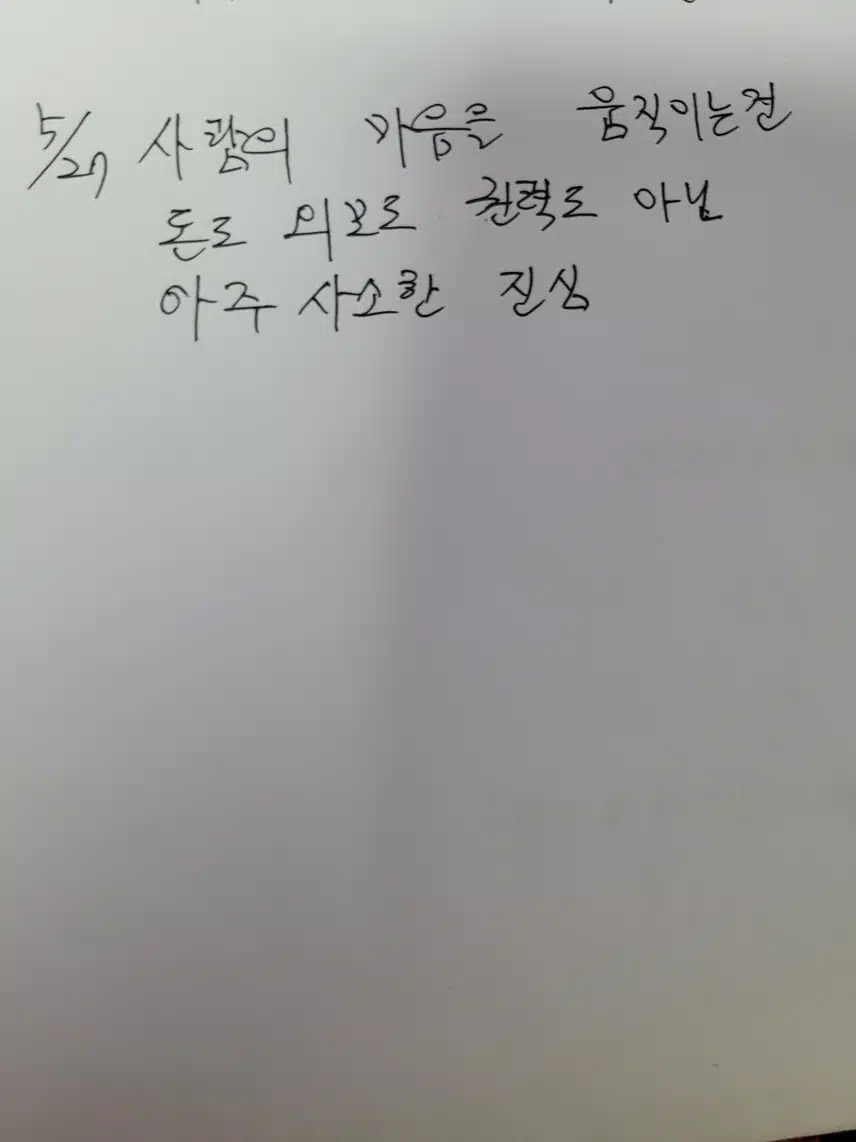 5/27 사람의 마음을 움직이는건
돈도 외모도 권력도 아닌
아주 사소한 진심